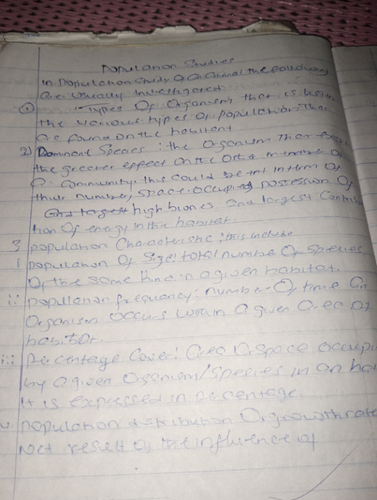 Population Studies
in Population Study Of an animal the following
are usually investigated
① Types Of Organism that is
the various types of population that
are found on the habitat
2) Dominant Species: the organism that
the greater effect on the other members of
a community, this could be in term of
their number, space occupied possession Of
and largest high biomes and largest
tion Of energy in the habitat.
3 population Characteristic: this include
i population Of Size: total number Of Species
Of the same kind in a given habitat.
ii population frequency: number Of time an
Organism occurs within a given area of
habitat.
iii Percentage Cover: Area Or space occupied
by a given Organism/species in an
it is expressed in percentage.
population distribution Or growth rate
net result of the influence of